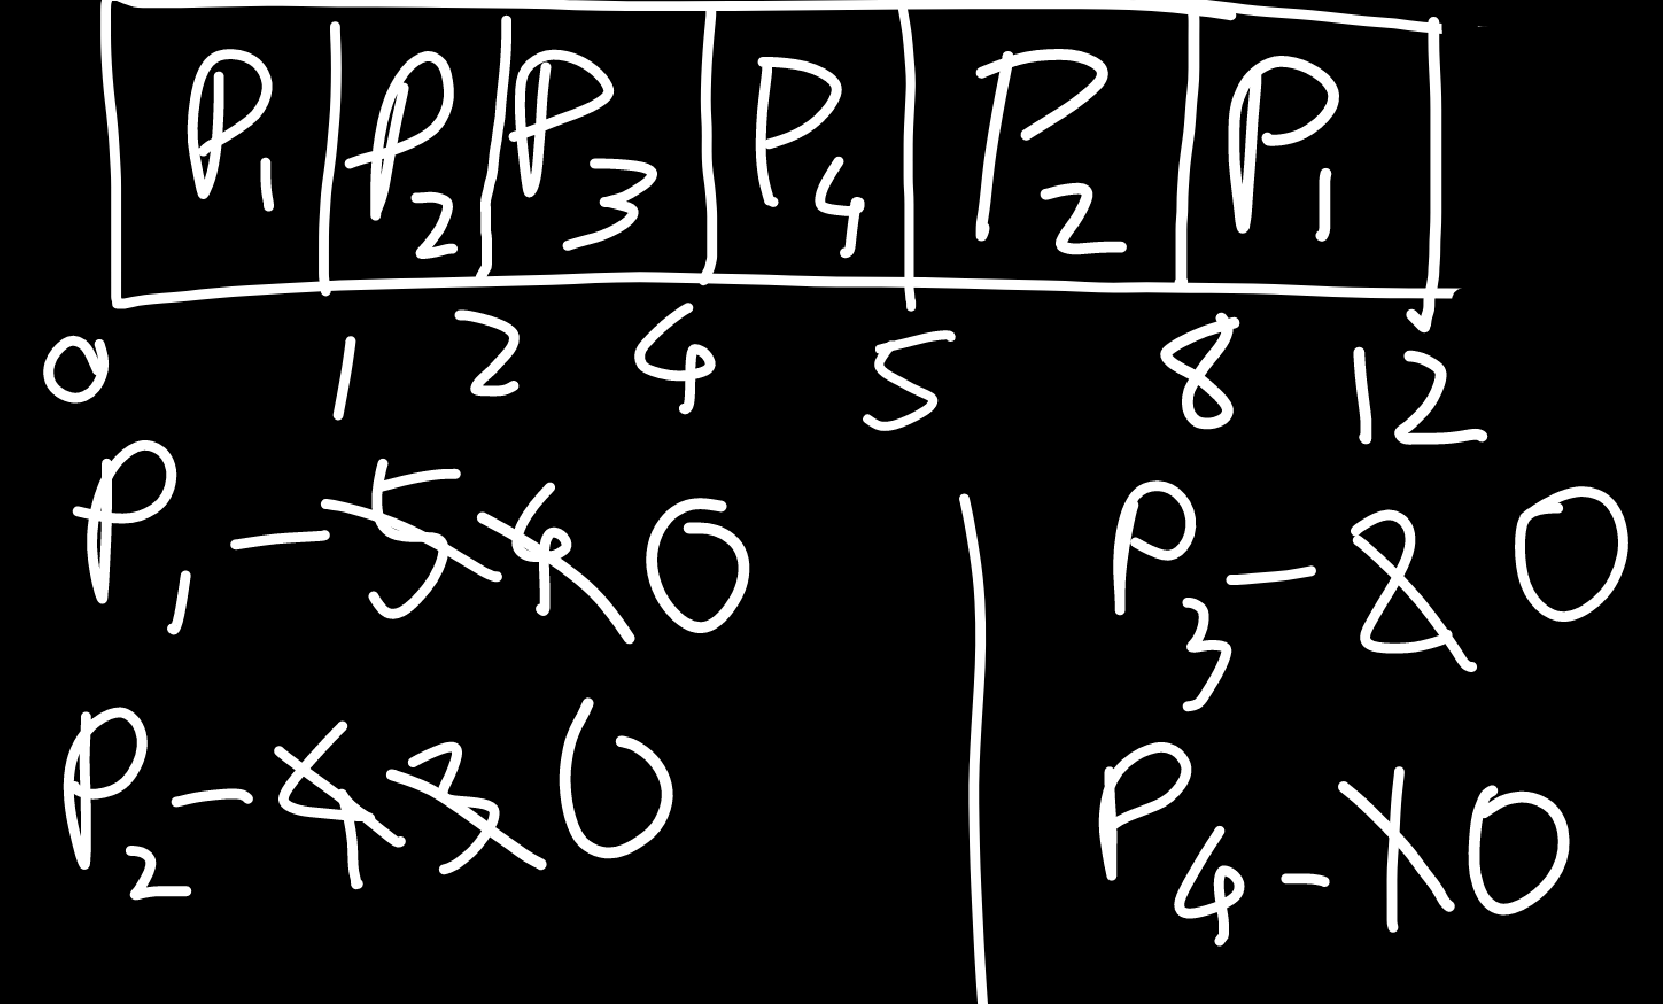 P1 P2 P3 P4 P2 P1
0 1 2 4 5 8 12
P1 - 5 4 0
P2 - 4 3 0
P3 - 2 0
P4 - 1 0